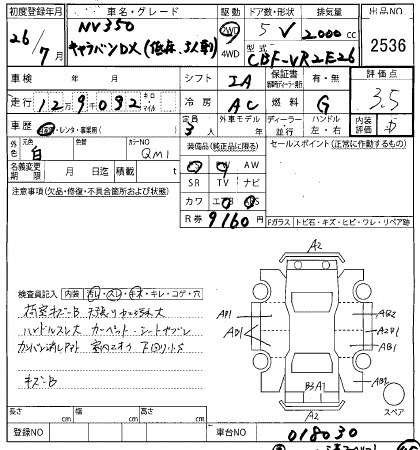 初度登録年月 車名・グレード 駆動 ドア数・形状 排気量 出品NO
26/7月 NV350 2WD 5 V 2000 cc 2536
キャラバンDX (低床、3人乗) 4WD 型式 CBF-VR2E26
車検 年 月 シフト IA 保証書 有・無 評価点
走行 129092 キロ マイル 冷房 AC 燃料 G 3.5
車歴 自家用・レンタ・事業用( ) 定員 3人 外車モデル 年 ディーラー 並行 ハンドル 左・右 内装評価 D
外色 元色 白 色替 カラーNO QM1 装備品(純正品に限る) セールスポイント(正常に作動するもの)
名義変更期限 月 日迄 積載 t PS PW AW
注意事項(欠品・修復・不具合箇所および状態) SR TV ナビ
カワ エアB ABS
R券 9160 円 Fガラス トビ石・キズ・ヒビ・ワレ・リペア跡
A2
検査員記入 内装 汚レ・スレ・キズ・キレ・コゲ・穴
荷室キズB 天張り 大
ハンドルスレ大 カーペット・シート
室内 下回り小S
キズB
AP1 AD1 AB2 A2P1 AB1 AB2
B3A1
A2
スペア
長さ cm 幅 cm 高さ cm
登録NO 車台NO 018030